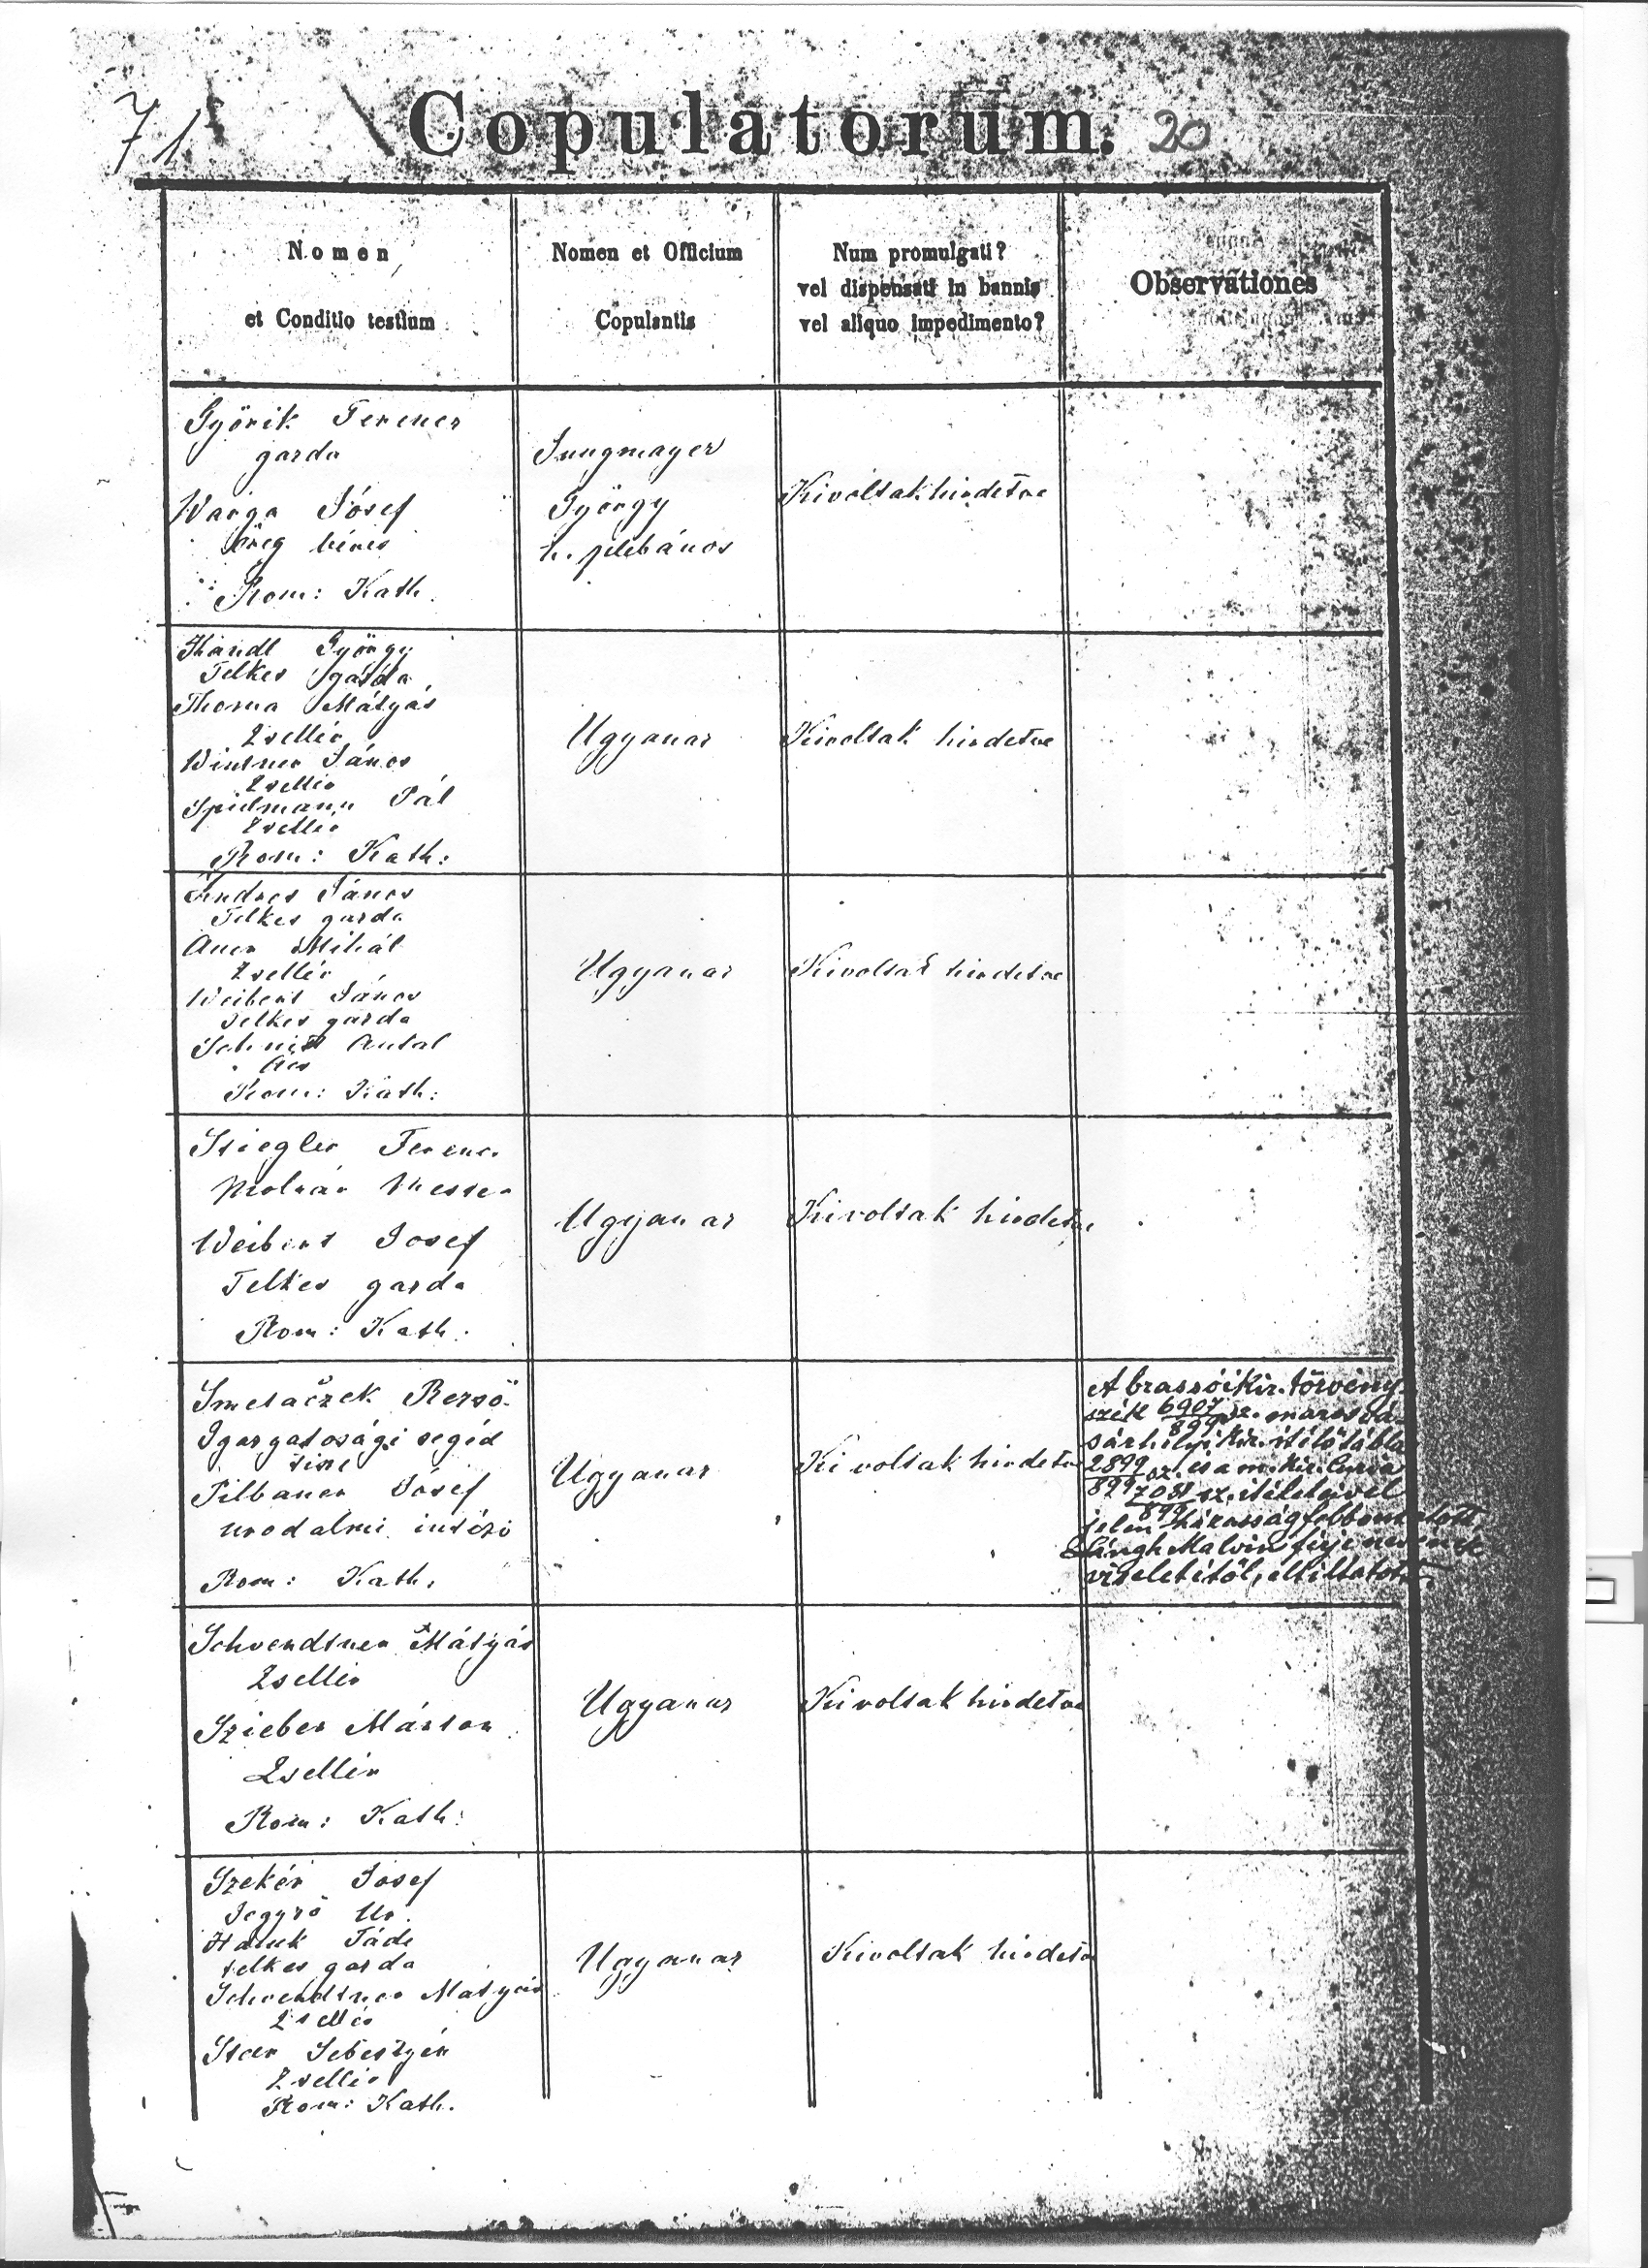 71
Copulatorum. 20
Nomen
et Conditio testium
Nomen et Officium
Copulantis
Num promulgati?
vel dispensati in bannis
vel aliquo impedimento?
Observationes
Györik Ferencz
garda
Warga Jósef
öreg béres
Rom: Kath.
Jungmayer
György
h. plébános
Kivoltak hirdetve
Handl György
Telkes gazda
Thoma Mátyás
Zsellér
Wintner János
Zsellér
Spielmann Pál
Zsellér
Rom: Kath:
Ugyanaz
Kivoltak hirdetve
Andres János
Telkes garda
Auer Mihál
Zsellér
Weibert János
Telkes garda
Schmidt Antal
Ács
Rom: Kath:
Ugyanaz
Kivoltak hirdetve
Stiegler Ferenc
Molnár Mester
Weibert Josef
Telkes garda
Rom: Kath.
Ugyanaz
Kivoltak hirdetve
Smetaczek Rezsö
Igazgatosági segéd
tiszt
Pilbauer Jósef
urodalmi intézö
Rom: Kath.
Ugyanaz
Kivoltak hirdetve
A brassói kir. törvény
szék 6907/899 sz. marosvá-
sárhelyi kir. itélötábla
2899/899 sz. és a m. kir. Curia
7081/899 sz. itéleteivel
jelen házasság felbontatott,
Lángh Malvin férje nevének
viseletétöl, eltiltatott.
Schvendtner Mátyás
Zsellér
Szieber Márton
Zsellér
Rom: Kath:
Ugyanaz
Kivoltak hirdetve
Szekér Josef
Jegyzö Ur.
Hauk Tádé
telkes garda
Schvendtner Matyás
Zsellér
Star Sebestyén
Zsellér
Rom: Kath.
Ugyanaz
Kivoltak hirdetve